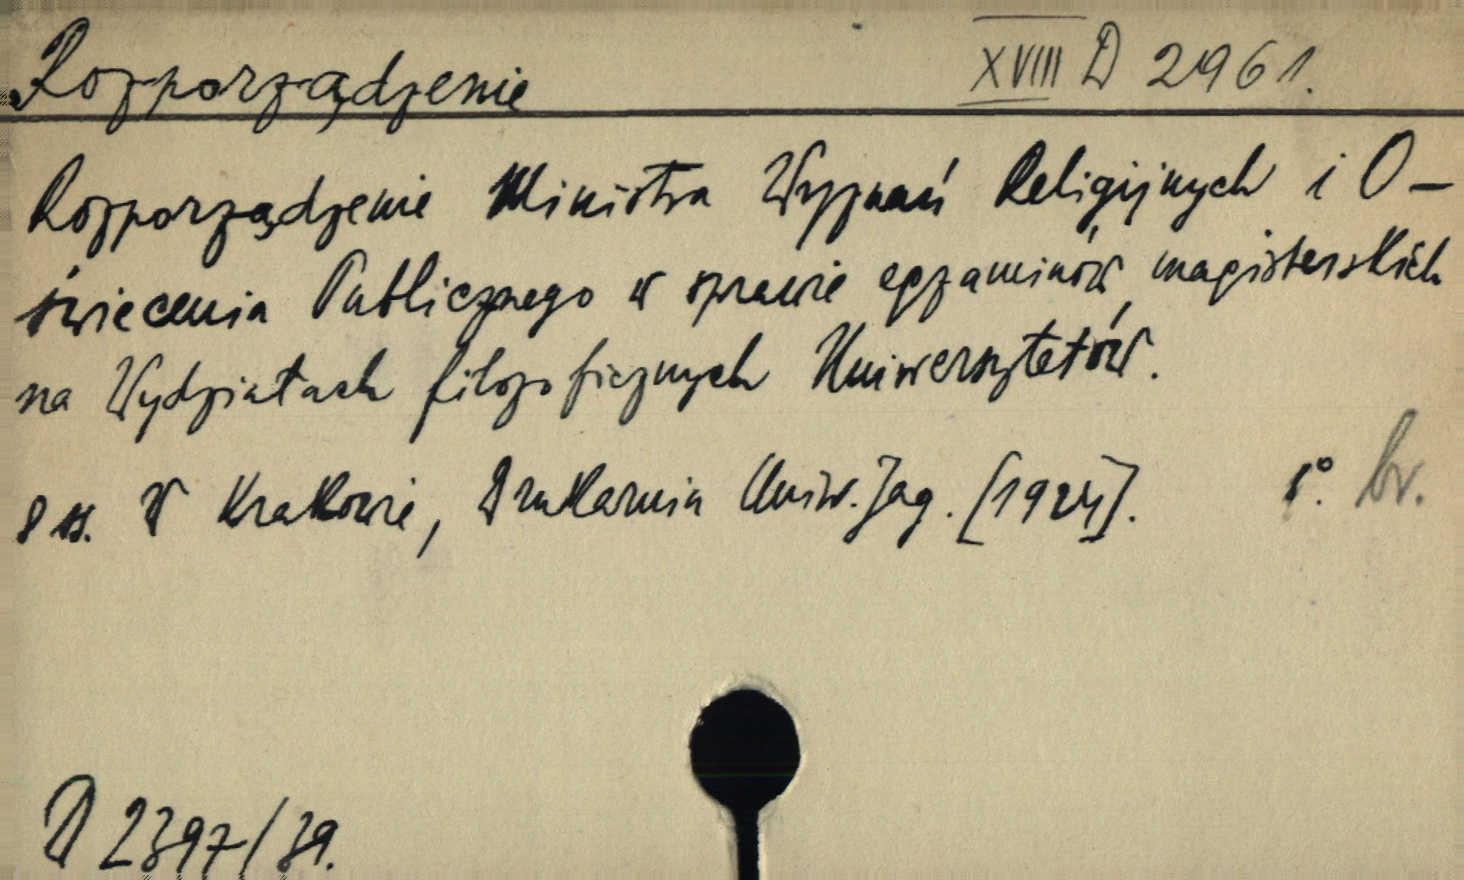 Rozporządzenie XVIII D 2961.
Rozporządzenie Ministra Wyznań Religijnych i O-
świecenia Publicznego w sprawie egzaminów magisterskich
na Wydziałach filozoficznych Uniwersytetów.
8 ss. W Krakowie, Drukarnia Uniw. Jag. [1924]. 8°. br.
D 2397/39.